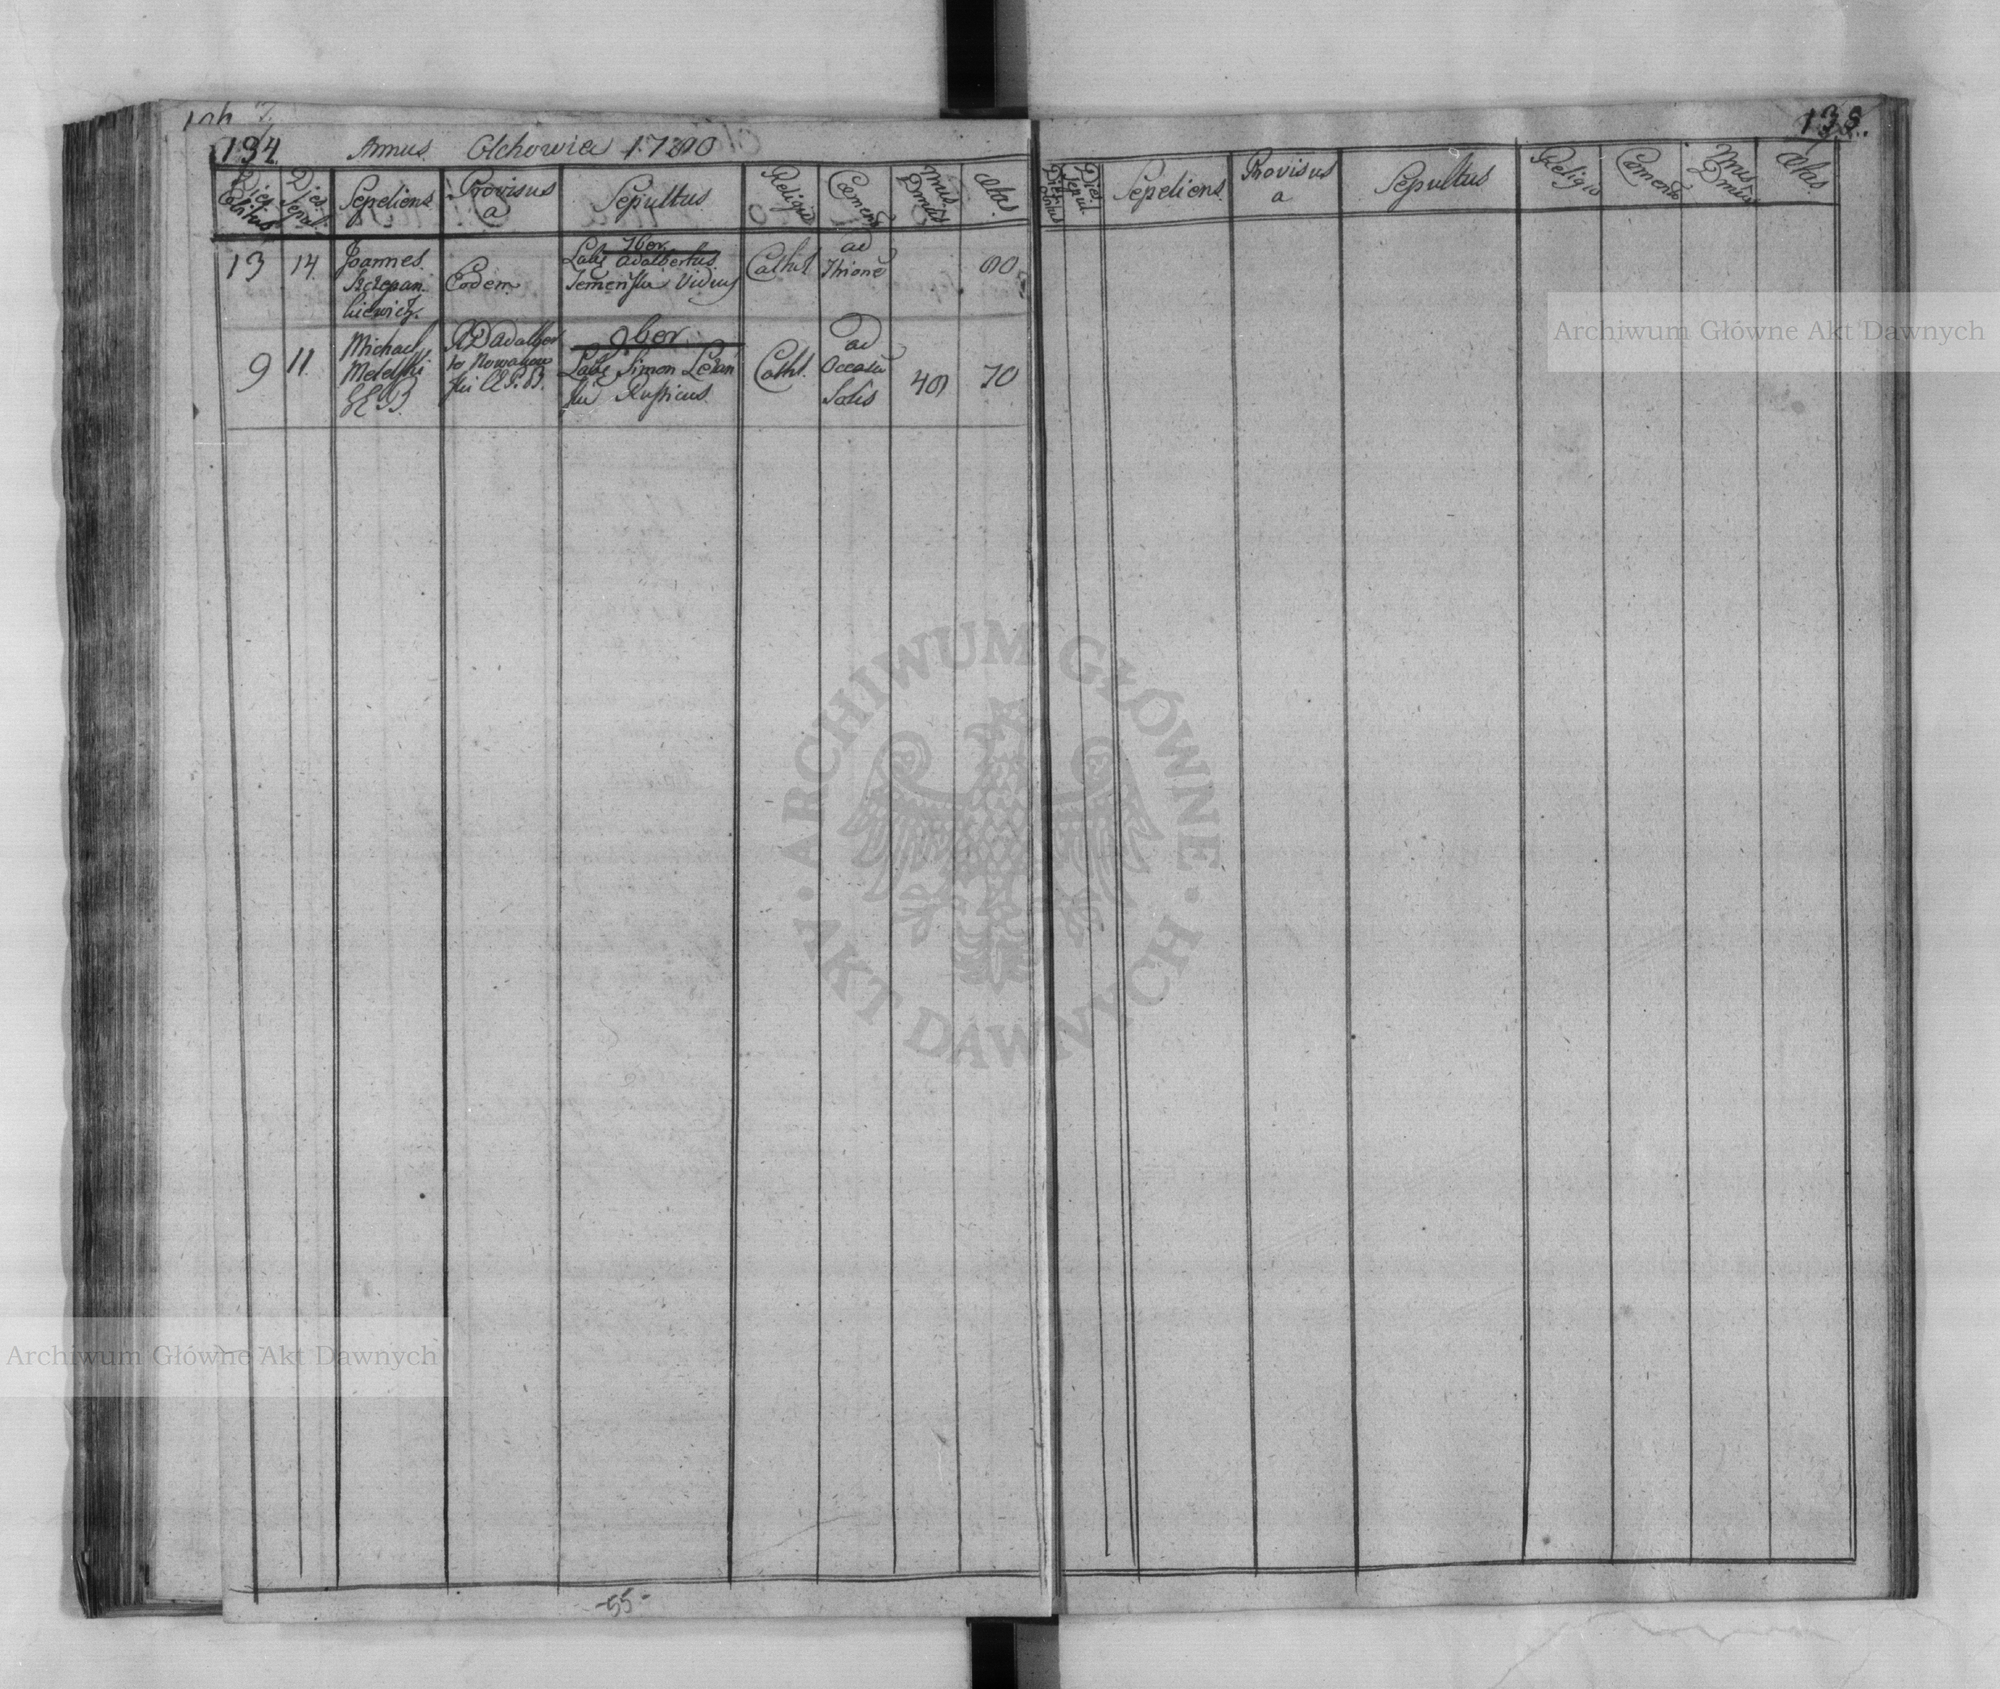 134.
Annus Olchowia 1790
Dies
Obitus
Dies
Sepul.
Sepeliens
Provisus
a
Sepultus
Religio
Cœmen
Nrus
Dmus
Ætas.
13
14.
Joannes
Szczepan
kiewicz.
Eodem
7ber
Lab. Adalbertus
Cathol
ad
90
9
11.
Michael
R D Adalber
to Nowakow
ski
9ber
Lab. Simon
ski Rusticus.
Cathl.
ad
Occasu
Solis
40
70
-55-
135.
Dies
Obitus
Dies
Sepul.
Sepeliens.
Provisus
a
Sepultus
Religio
Cœmen
Nrus
Dmus
Ætas.
Archiwum Główne Akt Dawnych
ARCHIWUM GŁÓWNE · AKT DAWNYCH ·
Archiwum Główne Akt Dawnych